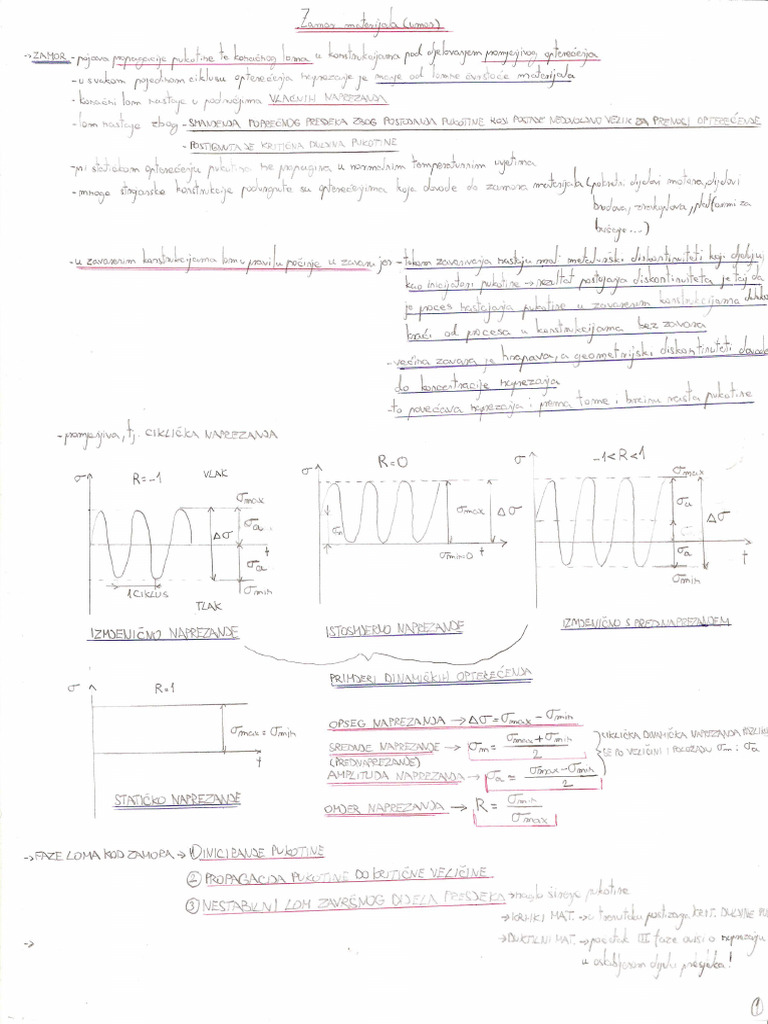 Zamor materijala (umor)
→ ZAMOR - pojava propagacije pukotine te konačnog loma u konstrukcijama pod djelovanjem promjenjivog opterećenja
- u svakom pojedinom ciklusu opterećenja naprezanje je manje od lomne čvrstoće materijala
- konačni lom nastaje u područjima VLAČNIH NAPREZANJA
- lom nastaje zbog - SMANJENJA POPREČNOG PRESJEKA ZBOG POSTOJANJA PUKOTINE KOJI POSTAJE NEDOVOLJNO VELIK ZA PRENOS OPTEREĆENJE
- POSTIGNUTA JE KRITIČNA DULJINA PUKOTINE
- pri statičkom opterećenju pukotina ne propagira u normalnim temperaturnim uvjetima
- mnoge strojarske konstrukcije podvrgnute su opterećenjima koja dovode do zamora materijala (pokretni dijelovi motora, dijelovi
brodova, zrakoplova, platformi za
bušenje...)
- u zavarenim konstrukcijama lom u pravilu počinje u zavaru jer - tokom zavarivanja nastaju mali metalurški diskontinuiteti koji djeluju
kao inicijatori pukotine → rezultat postojanja diskontinuiteta je taj da
je proces nastajanja pukotine u zavarenim konstrukcijama
kraći od procesa u konstrukcijama bez zavara
- većina zavara je hrapava, a geometrijski diskontinuiteti dovode
do koncentracije naprezanja
- to povećava naprezanja i prema tome i brzinu rasta pukotine
- promjenjiva, tj. CIKLIČKA NAPREZANJA
σ R=-1 VLAK σmax σa Δσ t σa σmin
1 CIKLUS TLAK
IZMJENIČNO NAPREZANJE
σ R=0 σmax Δσ σm σmin=0 t
ISTOSMJERNO NAPREZANJE
σ -1<R<1 σmax σa Δσ σa t σmin
IZMJENIČNO S PREDNAPREZANJEM
PRIMJERI DINAMIČKIH OPTEREĆENJA
σ R=1 σmax = σmin t
STATIČKO NAPREZANJE
OPSEG NAPREZANJA → Δσ = σmax - σmin
SREDNJE NAPREZANJE → σm = (σmax + σmin)/2
(PREDNAPREZANJE)
AMPLITUDA NAPREZANJA → σa = (σmax - σmin)/2
CIKLIČKA DINAMIČKA NAPREZANJA
SE PO VELIČINI I POLOŽAJU σm i σa
OMJER NAPREZANJA → R = σmin/σmax
→ FAZE LOMA KOD ZAMORA → ① INICIRANJE PUKOTINE
② PROPAGACIJA PUKOTINE DO KRITIČNE VELIČINE
③ NESTABILNI LOM ZAVRŠNOG DIJELA PRESJEKA → naglo širenje pukotine
→ KRHKI MAT. → u trenutku postizanja KRIT. DULJINE
→ DUKTILNI MAT. → početak III faze ovisi o naprezanju
u oslabljenom dijelu presjeka!
→
1